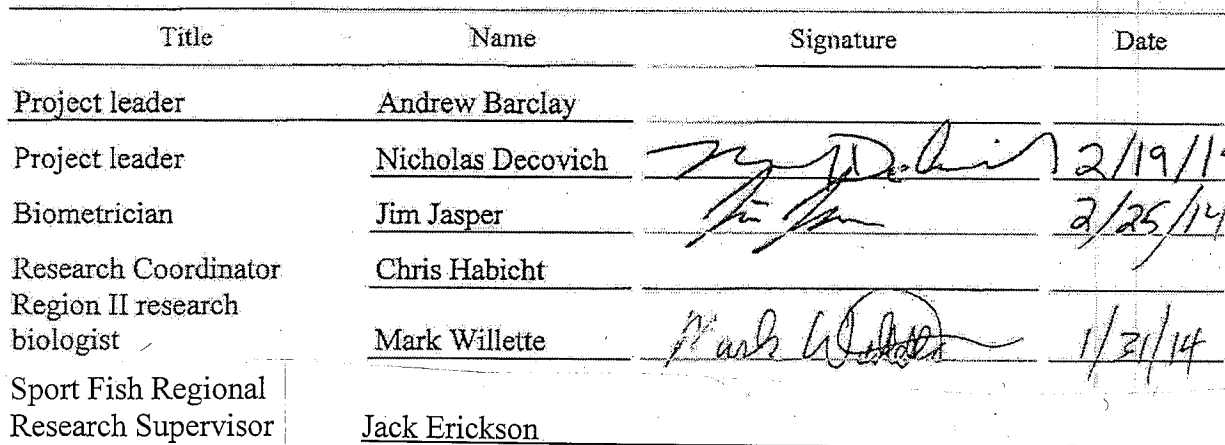 Title Name Signature Date
Project leader Andrew Barclay
Project leader Nicholas Decovich 2/19/1
Biometrician Jim Jasper Jim 2/25/14
Research Coordinator Chris Habicht
Region II research
biologist Mark Willette Mark Willette 1/31/14
Sport Fish Regional
Research Supervisor Jack Erickson